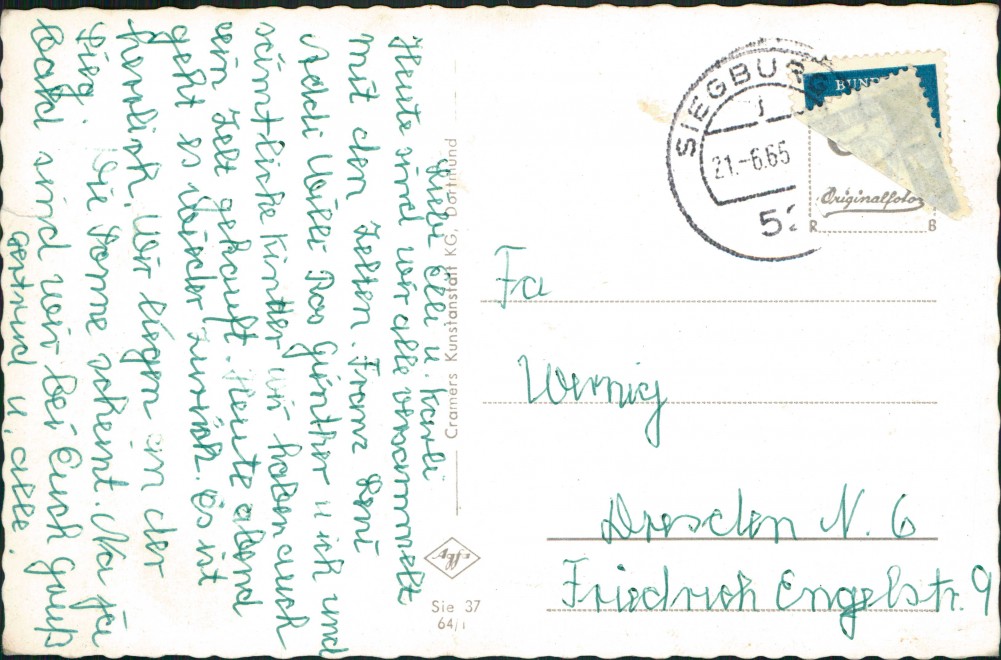 Liebe Elli u. Karli
Heute sind wir alle versammelt
mit den Zelten. Franz Leni
Addi Willi Ros Günther u ich und
sämtliche Kinder wir haben auch
ein Zelt gekauft. Heute abend
geht es wieder zurück. Es ist
herrlich. Wir liegen in der
Sieg. Die Sonne scheint. Na ja
bald sind wir bei Euch Gruß
Gertrud u. alle.
Cramers Kunstanstalt KG, Dortmund
Agfa
Sie 37
64/1
SIEGBURG
1
21.-6.65
52
BUND
Originalfoto
R B
Fa
Wernig
Dresden N. 6
Friedrich Engelstr. 9